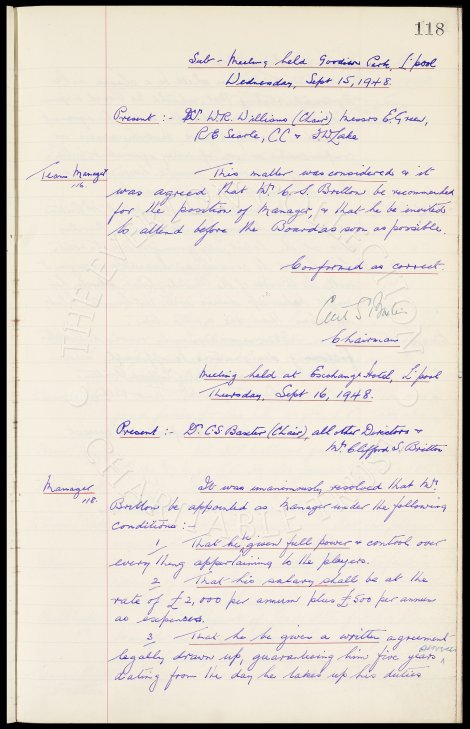 118
Sub-Meeting held Goodison Park, L'pool
Wednesday, Sept 15, 1948.
Present :- Dr. W.R. Williams (Chair) Messrs E. Green,
R.E. Searle, C.C & T.W. Lake
Team Manager
116.
This matter was considered & it
was agreed that Mr C. S. Britton be recommended
for the position of Manager, & that he be invited
to attend before the Board as soon as possible.
Confirmed as correct.
Chairman
Meeting held at Exchange Hotel, L'pool
Thursday, Sept 16, 1948.
Present :- Dr. C.S. Baxter (Chair), all other Directors &
Mr Clifford S. Britton
Manager
118.
It was unanimously resolved that Mr
Britton be appointed as Manager under the following
conditions :-
1. That he given full power & control over
every thing appertaining to the players.
2. That his salary shall be at the
rate of £2,000 per annum plus £500 per annum
as expenses.
3. That he be given a written agreement
legally drawn up, guaranteeing him five years service
dating from the day he takes up his duties